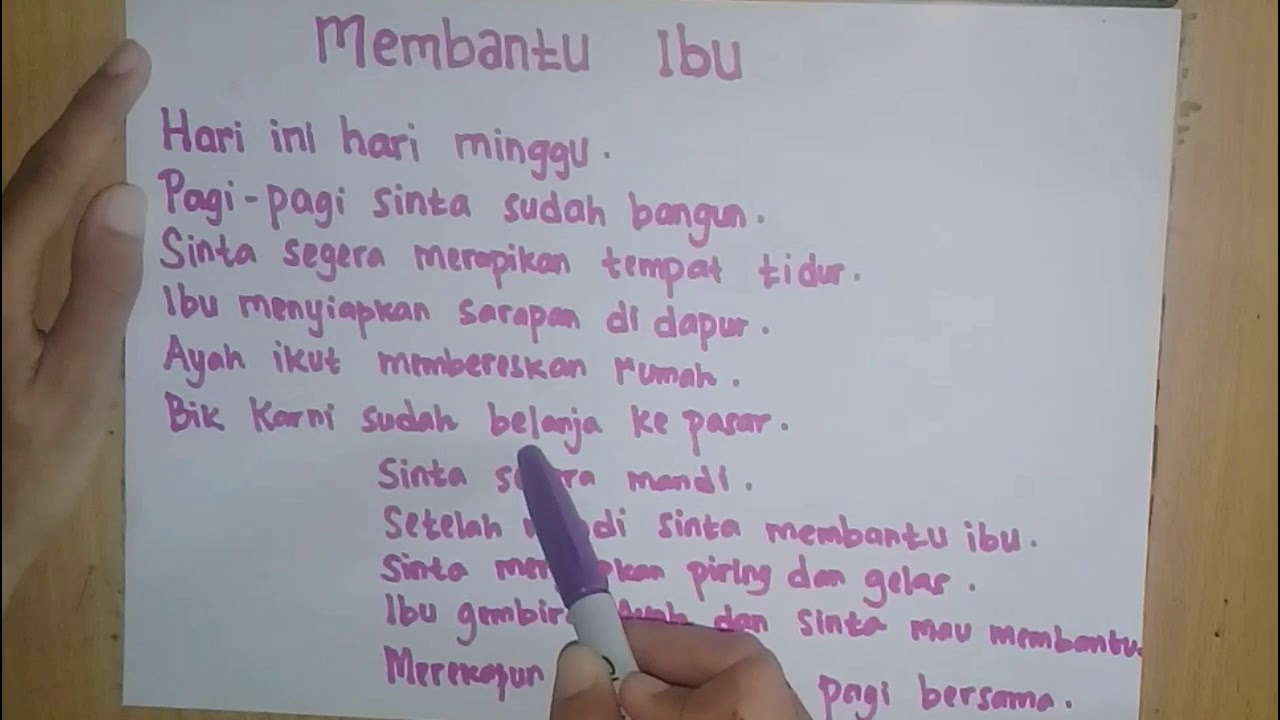 Membantu Ibu
Hari ini hari minggu.
Pagi-pagi sinta sudah bangun.
Sinta segera merapikan tempat tidur.
Ibu menyiapkan sarapan di dapur.
Ayah ikut membereskan rumah.
Bik Karni sudah belanja ke pasar.
Sinta mandi.
Setelah sinta membantu ibu.
Sinta piring dan gelas.
Ibu dan sinta mau membantu.
Merekapun pagi bersama.